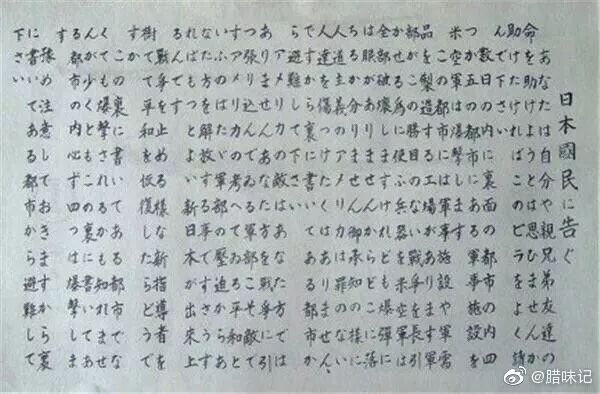 日本國民に告ぐ
あなたは自分や親兄弟友達の
命を助けようとは思ひませんか
助けたければこのビラをよく讀
んで下さい
数日の内に裏面の都市の内四
つか五つの都市にある軍事施設を
米空軍は爆撃します
この都市には軍事施設や軍需
品を製造する工場があります軍
部がこの勝目のない戦争を長引
かせる為に使ふ兵器を
全部破壊しますけれども爆弾には
眼がありませんからどこに落
ちるか
人道主義のアメリカは罪のない
人達を傷つけたくはありません
ですから裏に書いてある都市
から避難して下さい
アメリカの敵はあなた方では
ありませんあなた方を戦争に引
っ張り込んでゐる軍部こそ敵で
すアメリカの考へてゐる平和と
いふのはただ軍部の壓迫からあ
なた方を解放する事ですそうす
ればもっとよい新日本が出来上
るんです
戦争を止める様な新指導者を
樹てて平和を恢復したらどうで
すか
この裏に書いてある都市でな
くても爆撃されるかも知れませ
んが少くともこの裏に書いてあ
る都市の内四つは
爆撃します
注意しておきますから裏
に書いてある都市から避難して
下さい
@腊味记